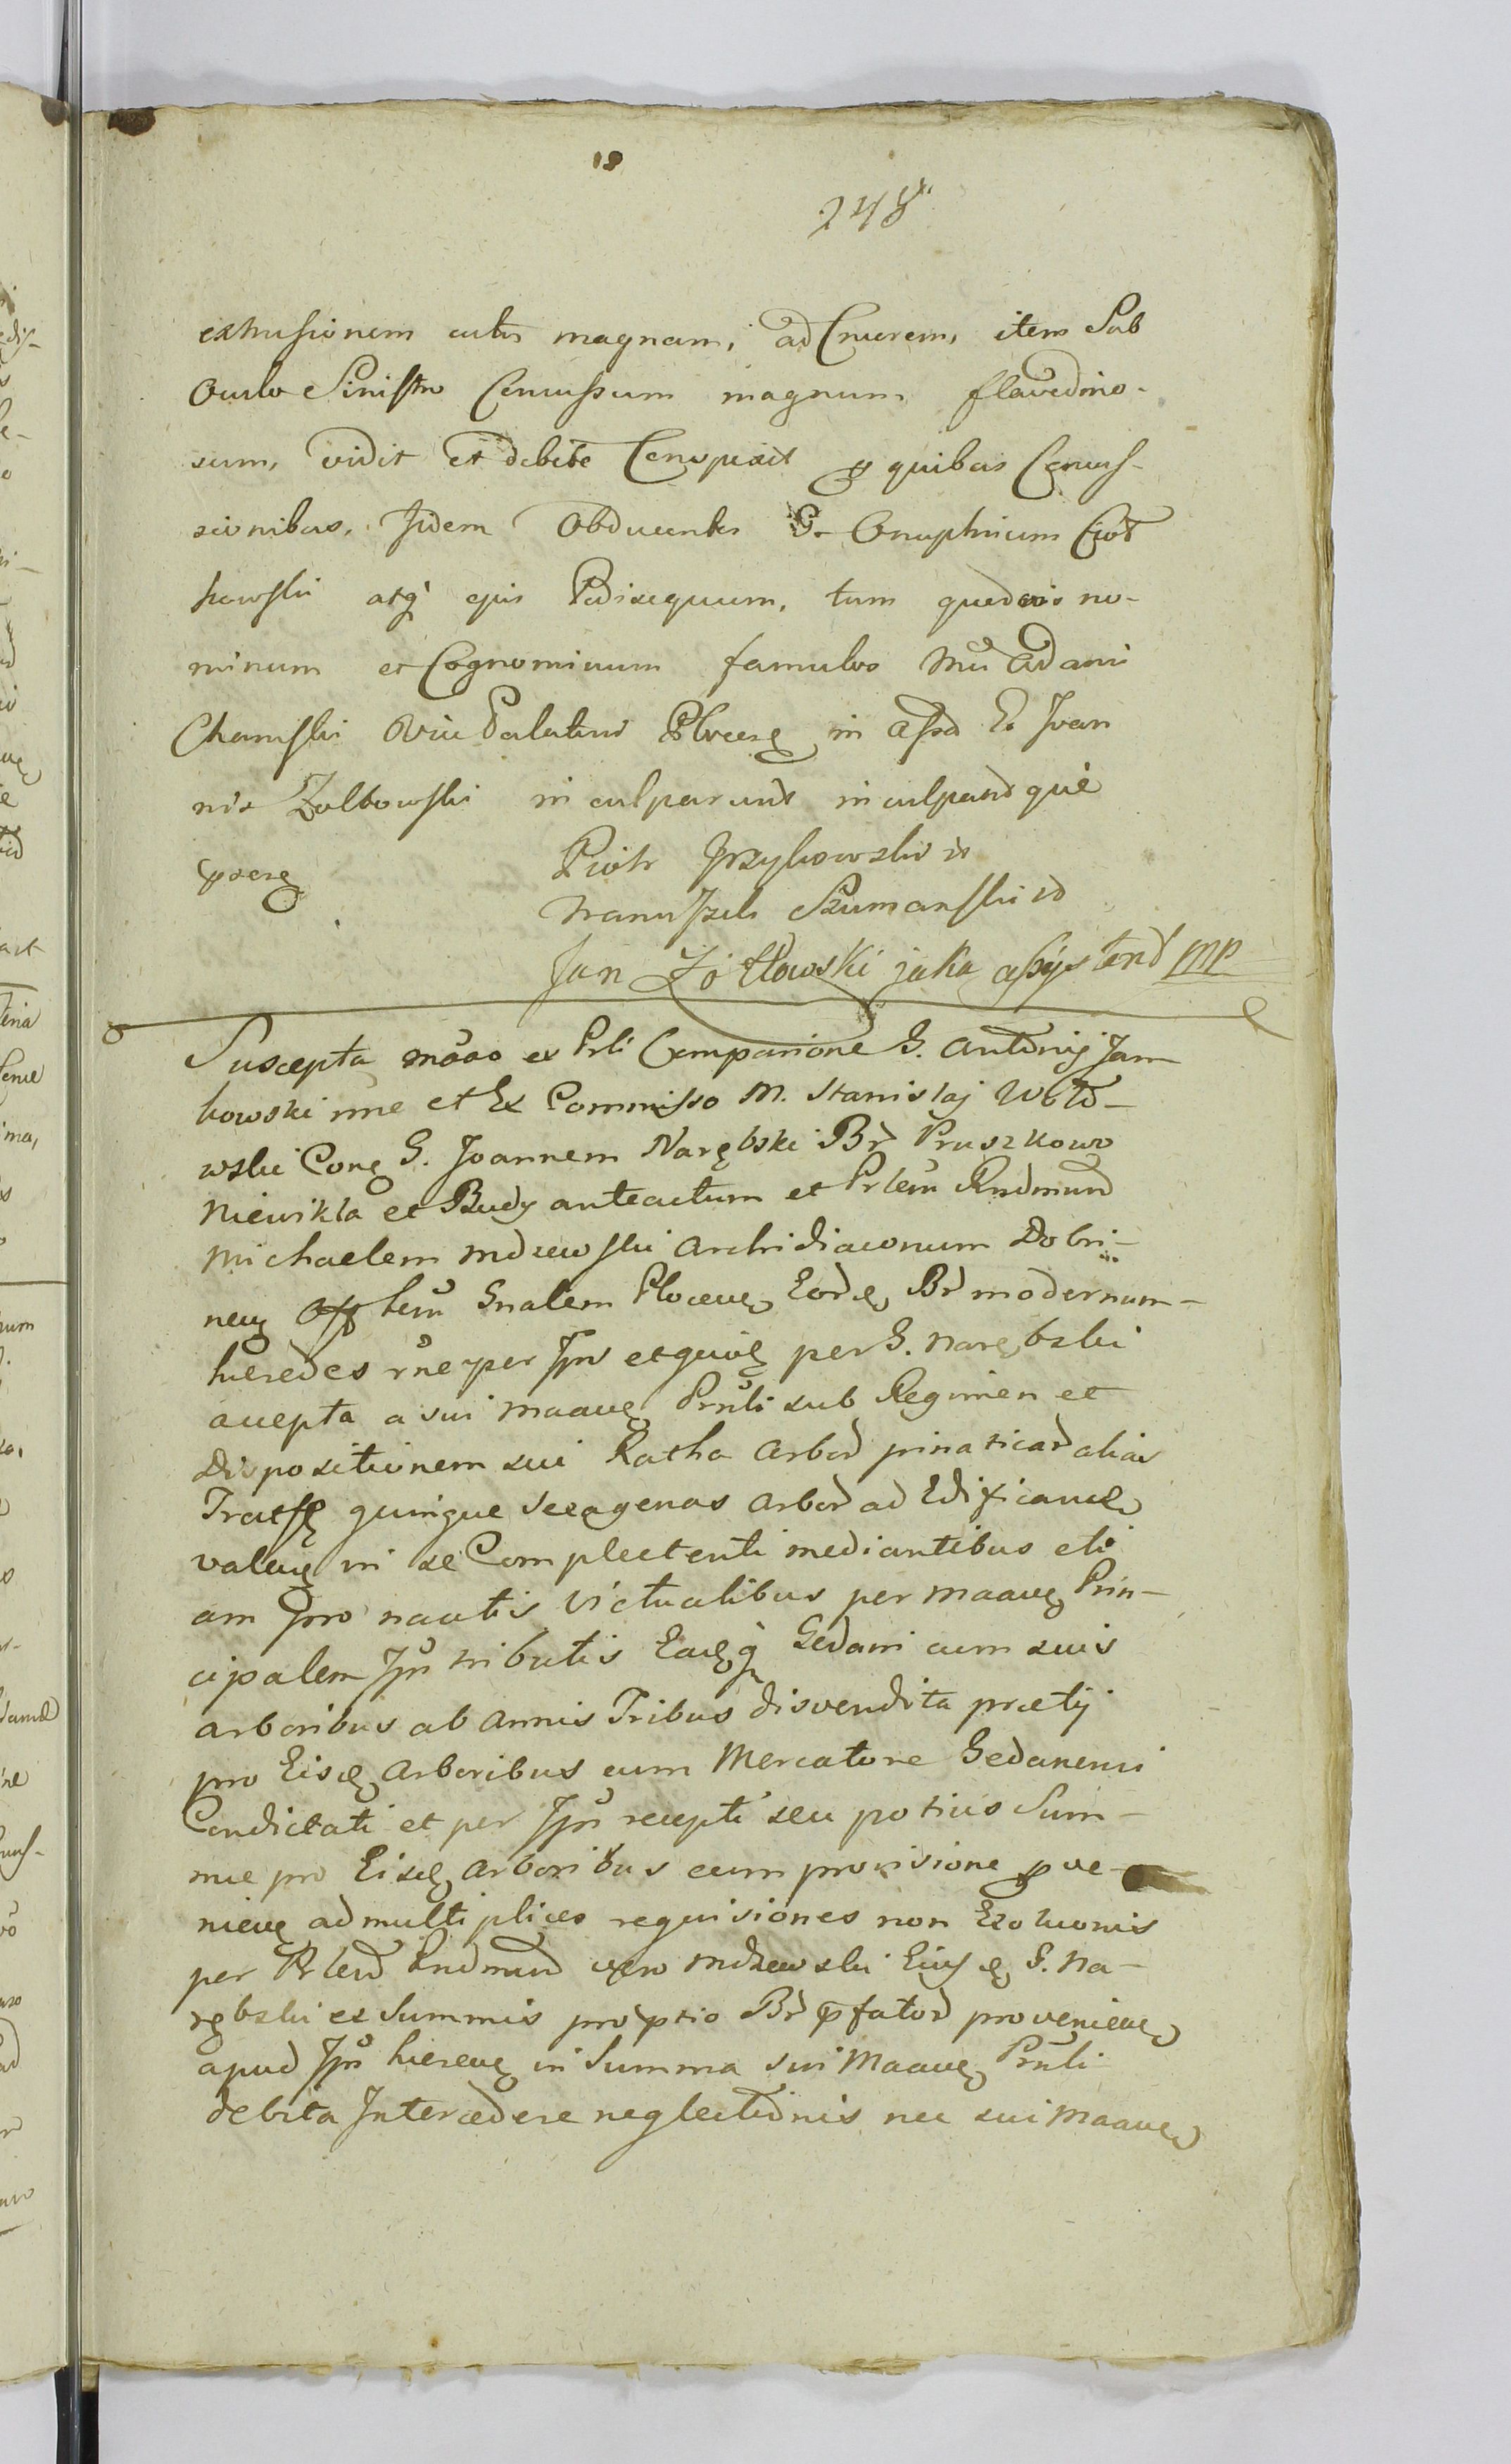 18
248
extrusionem cutis magnam, ad Cruorem, item Sub
Oculo Sinistro Concussum magnum flavedino-
sum, vidit et debite Conspexit quibus Concus-
sionibus, Iidem Obducentes G. Onuphrium Ciot
kowski atq ejus Pedissequum, tum quedvis no-
minum et Cognominum famulos Mci Adami
Chamski Palatini Plocen in assa G. Joan
nis Zoltowski inculparunt inculpantque
pens
Piotr Przykowski
Szumanski
Jan Żółtowski jako assystent mp
Suscepta mdao ex Prli Comparione G. Antonij Jan
kowski nne et Ex Commisso M. Stanislaj Woło-
wski Cong G. Joannem Narębski Br Pruszkowo
Niewikla et Budy anteactum et Prlem Rndmum
Michaelem Mdzewski Archidiaconum Dobri-
nen Offlem Gnalem Plocen Eord Br modernum
heredes rne per Ipn per G. Narębski
accepta a sui Maaue Prnli sub Regimen et
Dispositionem sui Ratha Arbor pinaticar alias
Traffę quinque sexagenas arbor ad Edificand
valen in se Complectenti mediantibus eti
am pro nautis Victualibus per Maaue Prin-
cipalem Ipn tributis Eadq Gedani cum suis
arboribus ab annis Tribus disvendita praetij
pro Eisd Arboribus cum Mercatore Gedanensi
Condictati et per Ipn recepti seu potius Sum-
mae pro Eisd Arboribus cum provisione ve-
nien ad multiplices requisiones non Exoluonis
per Prlem Rndmum vero Mdzewski Eiusd G. Na-
rębski ex Summis pro ptio Br pfator provenien
apud Ipn heren in Summa sui Maaue Prnli
debita Intercedere neglectionis nec sui Maaue